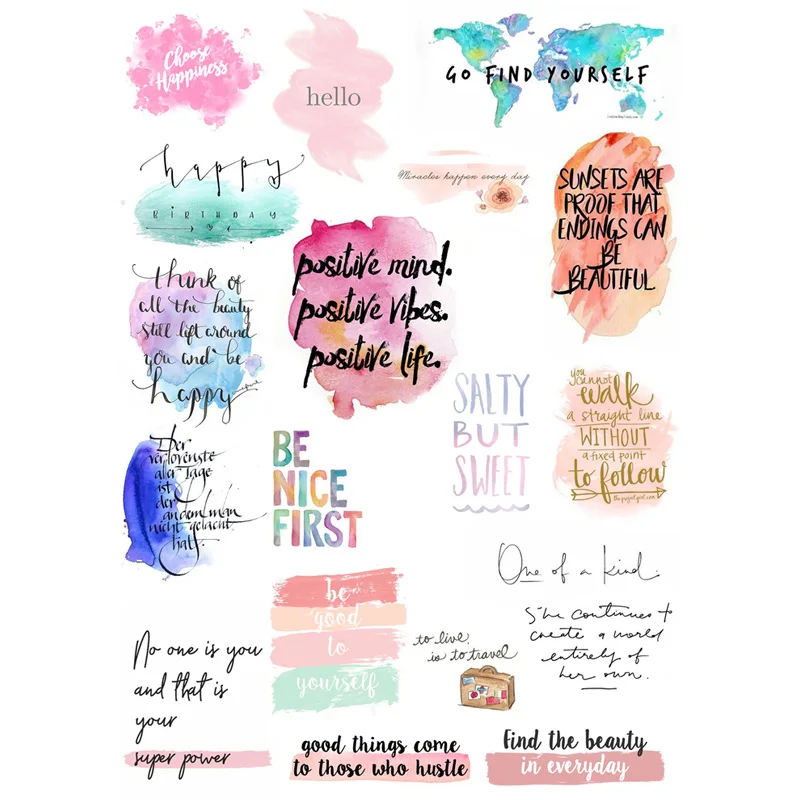 Choose
Happiness
hello
GO FIND YOURSELF
happy
BIRTHDAY
Miracles happen every day
SUNSETS ARE
PROOF THAT
ENDINGS CAN
BE
BEAUTIFUL
positive mind.
positive vibes.
positive life.
think of
all the beauty
still left around
you and be
happy
SALTY
BUT
SWEET
you
cannot
walk
a straight line
WITHOUT
a fixed point
to follow
Der
verlorenste
aller Tage
ist
der
an dem man
nicht gelacht
hat.
BE
NICE
FIRST
One of a kind.
be
good
to
yourself
She continues to
create a world
entirely of
her own.
to live,
is to travel
No one is you
and that is
your
super power
good things come
to those who hustle
find the beauty
in everyday